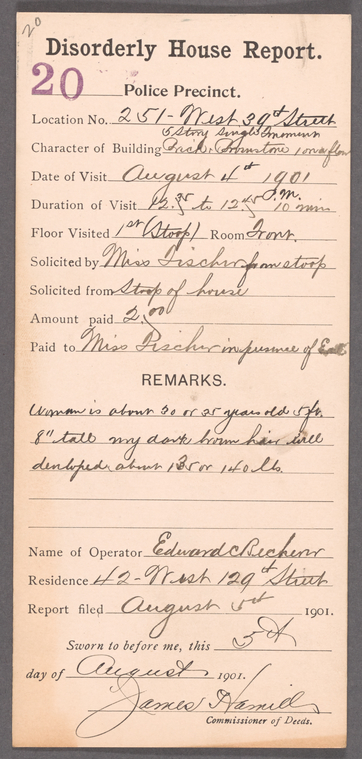 20
Disorderly House Report.
20
Police Precinct.
Location No. 251 - West 39th Street
5 Story Single
Character of Building Brick Brownstone 1 on a floor
Date of Visit August 4th 1901
Duration of Visit 12.35 to 12.45 P.M. 10 min
Floor Visited 1st (Stoop) Room Front.
Solicited by Miss Fischer from stoop
Solicited from Stoop of house
Amount paid 2.00
Paid to Miss Fischer in presence of
REMARKS.
Woman is about 30 or 35 years old 5 ft.
8" tall dark brown hair well
devloped about 135 or 140 lbs.
Name of Operator Edward
Residence 42 - West 129th Street
Report filed August 5th 1901.
Sworn to before me, this 5th
day of August 1901.
James Hamill
Commissioner of Deeds.